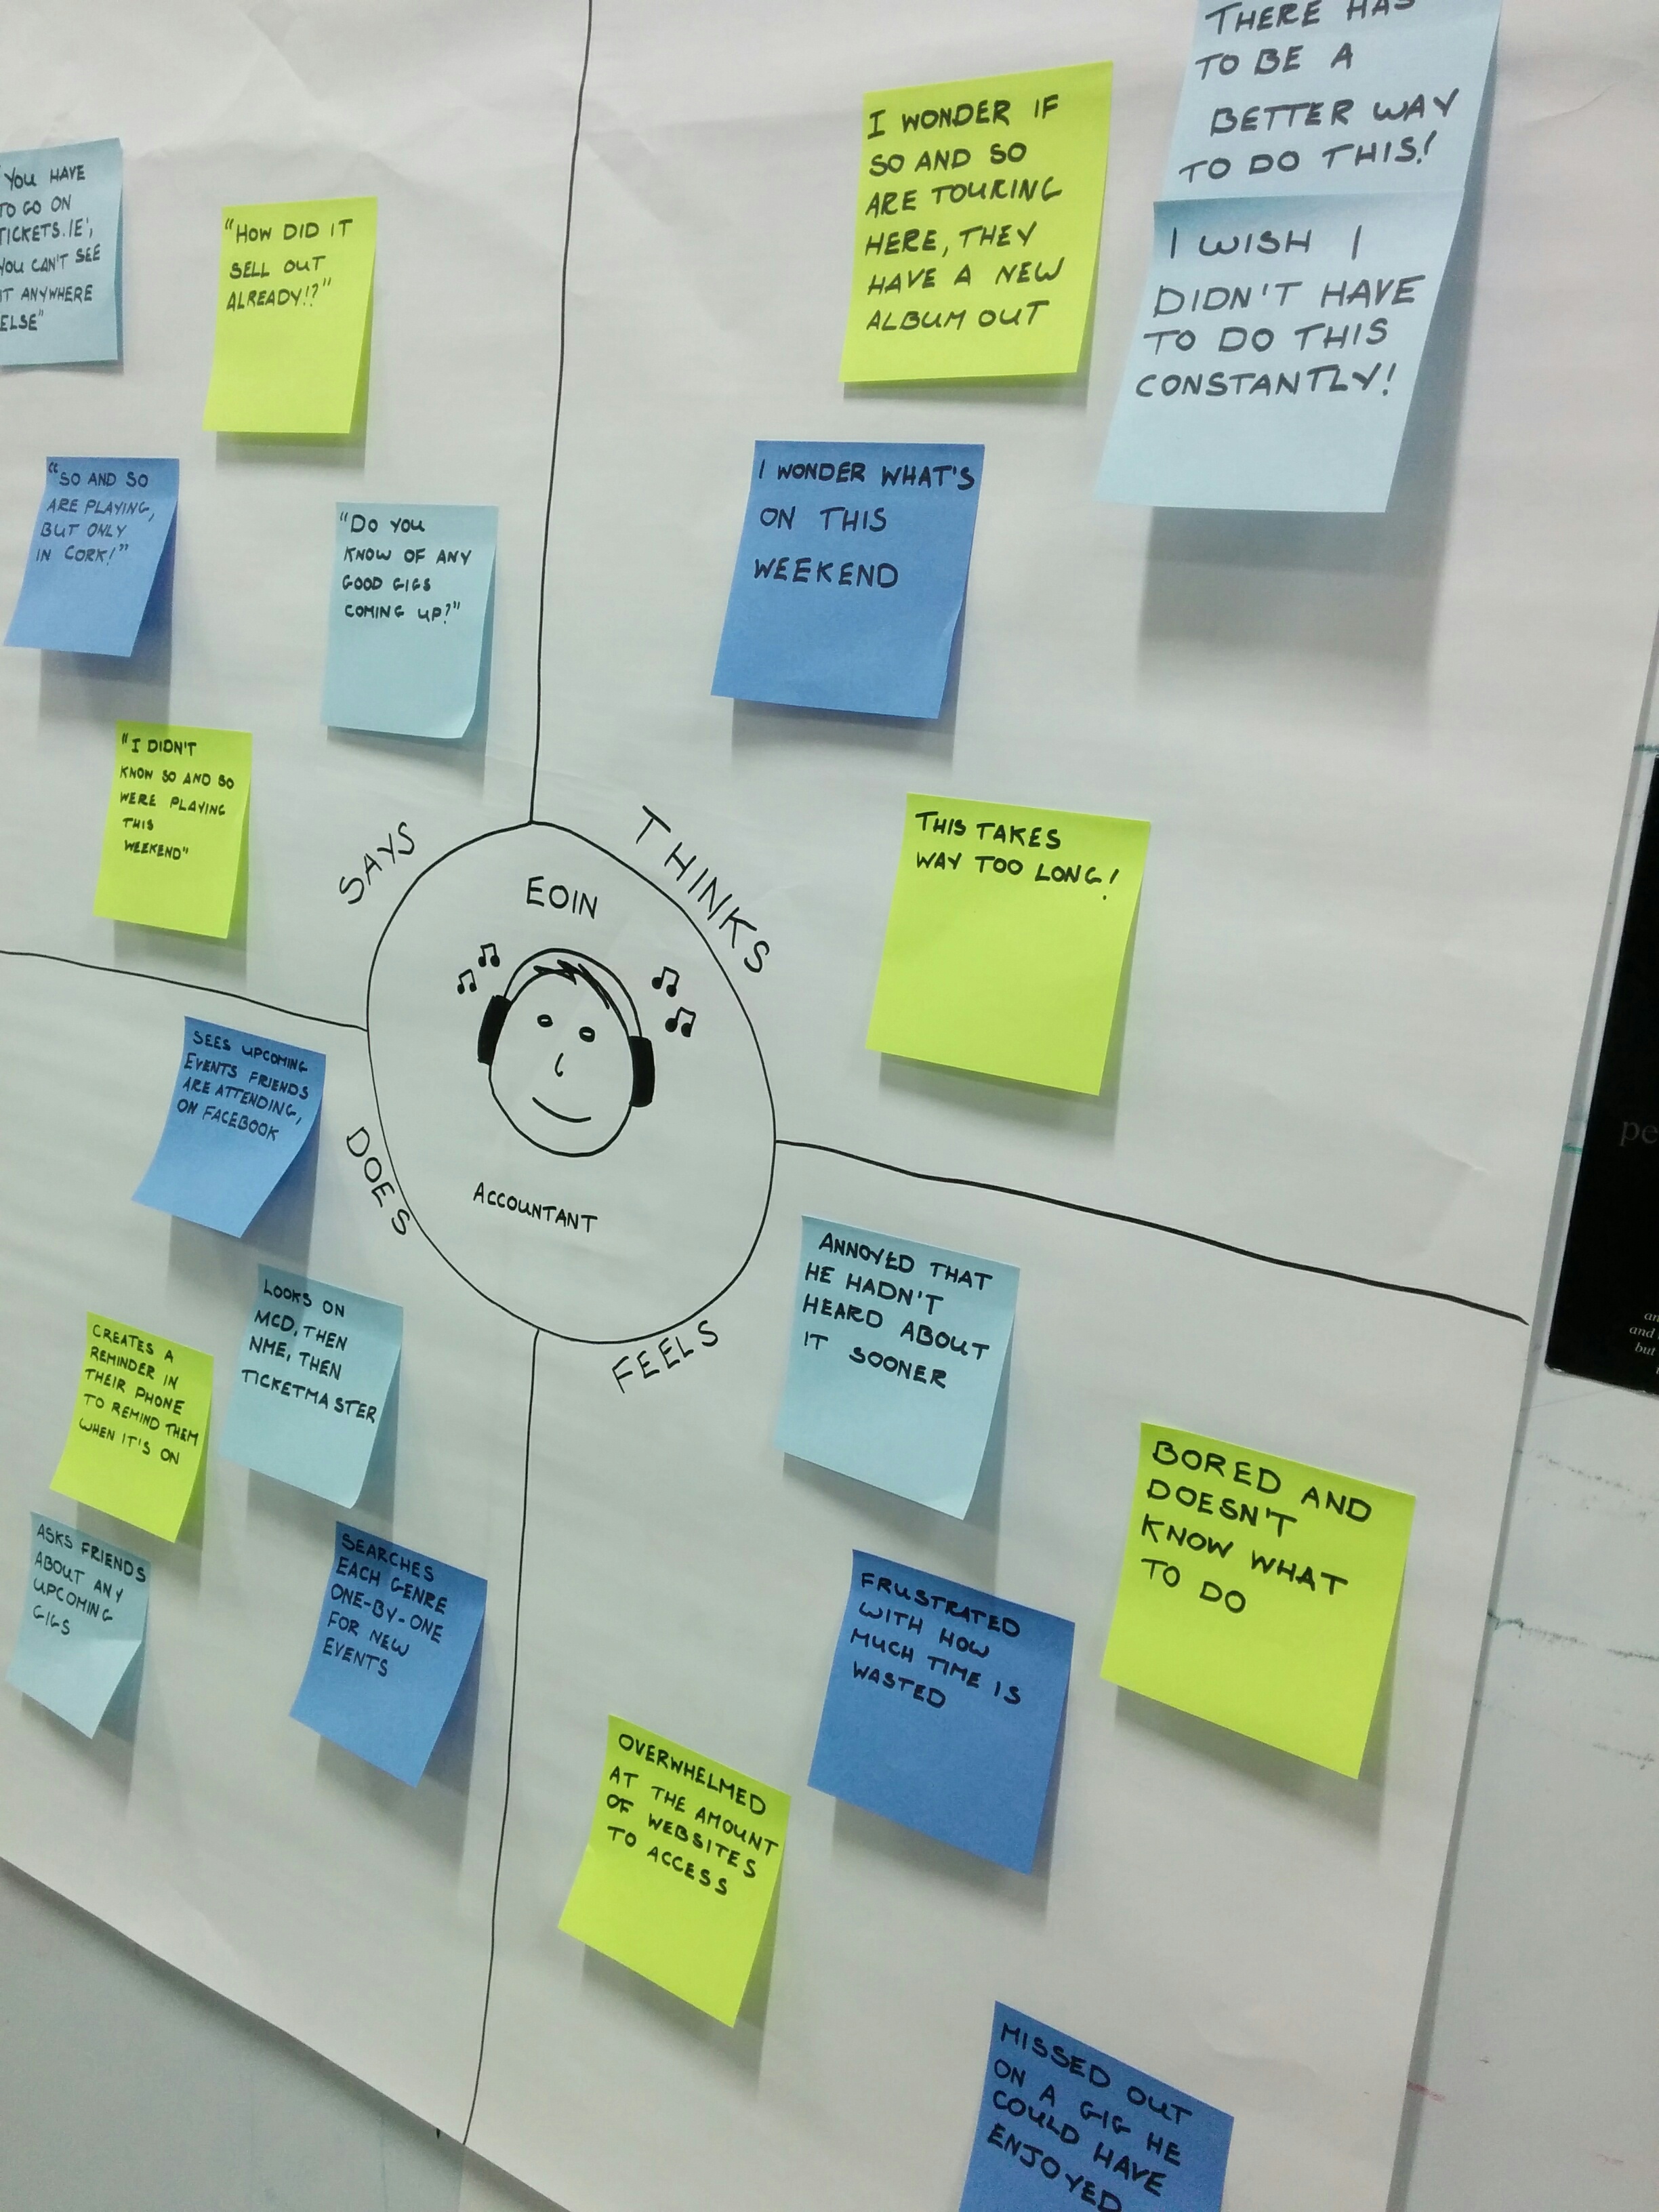 "YOU HAVE
TO GO ON
TICKETS.IE',
YOU CAN'T SEE
IT ANYWHERE
ELSE"
"HOW DID IT
SELL OUT
ALREADY!?"
"SO AND SO
ARE PLAYING,
BUT ONLY
IN CORK!"
"DO YOU
KNOW OF ANY
GOOD GIGS
COMING UP?"
"I DIDN'T
KNOW SO AND SO
WERE PLAYING
THIS
WEEKEND"
SAYS
I WONDER IF
SO AND SO
ARE TOURING
HERE, THEY
HAVE A NEW
ALBUM OUT
THERE HAS
TO BE A
BETTER WAY
TO DO THIS!
I WISH I
DIDN'T HAVE
TO DO THIS
CONSTANTLY!
I WONDER WHAT'S
ON THIS
WEEKEND
THIS TAKES
WAY TOO LONG!
THINKS
EOIN
ACCOUNTANT
DOES
SEES UPCOMING
EVENTS FRIENDS
ARE ATTENDING,
ON FACEBOOK
LOOKS ON
MCD, THEN
NME, THEN
TICKETMASTER
CREATES A
REMINDER IN
THEIR PHONE
TO REMIND THEM
WHEN IT'S ON
ASKS FRIENDS
ABOUT ANY
UPCOMING
GIGS
SEARCHES
EACH GENRE
ONE-BY-ONE
FOR NEW
EVENTS
FEELS
ANNOYED THAT
HE HADN'T
HEARD ABOUT
IT SOONER
BORED AND
DOESN'T
KNOW WHAT
TO DO
FRUSTRATED
WITH HOW
MUCH TIME IS
WASTED
OVERWHELMED
AT THE AMOUNT
OF WEBSITES
TO ACCESS
MISSED OUT
ON A GIG HE
COULD HAVE
ENJOYED
pe
and
but